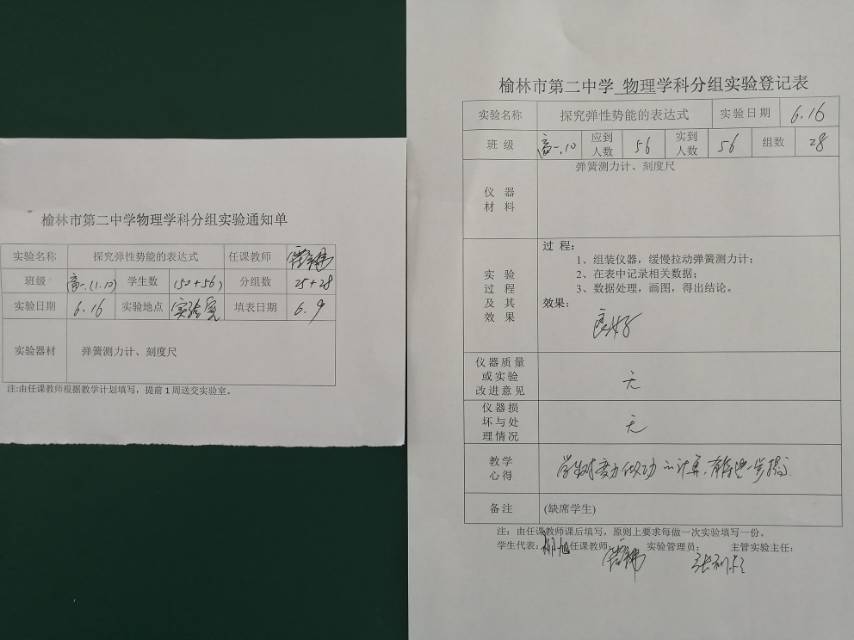 榆林市第二中学物理学科分组实验通知单
实验名称 探究弹性势能的表达式 任课教师
班级 高一.(1.10) 学生数 (50+56) 分组数 25+28
实验日期 6.16 实验地点 实验室 填表日期 6.9
实验器材 弹簧测力计、刻度尺
注:由任课教师根据教学计划填写，提前1周送交实验室。
榆林市第二中学 物理学科分组实验登记表
实验名称 探究弹性势能的表达式 实验日期 6.16
班 级 高一.10 应到人数 56 实到人数 56 组数 28
仪 器 材 料 弹簧测力计、刻度尺
实 验 过 程 及 其 效 果
过 程:
1、组装仪器，缓慢拉动弹簧测力计;
2、在表中记录相关数据;
3、数据处理，画图，得出结论。
效果:
良好
仪器质量或实验改进意见 无
仪器损坏与处理情况 无
教学心得 学生对变力做功的计算,有待进一步提高
备注 (缺席学生)
注：由任课教师课后填写，原则上要求每做一次实验填写一份。
学生代表: 任课教师: 实验管理员: 主管实验主任: